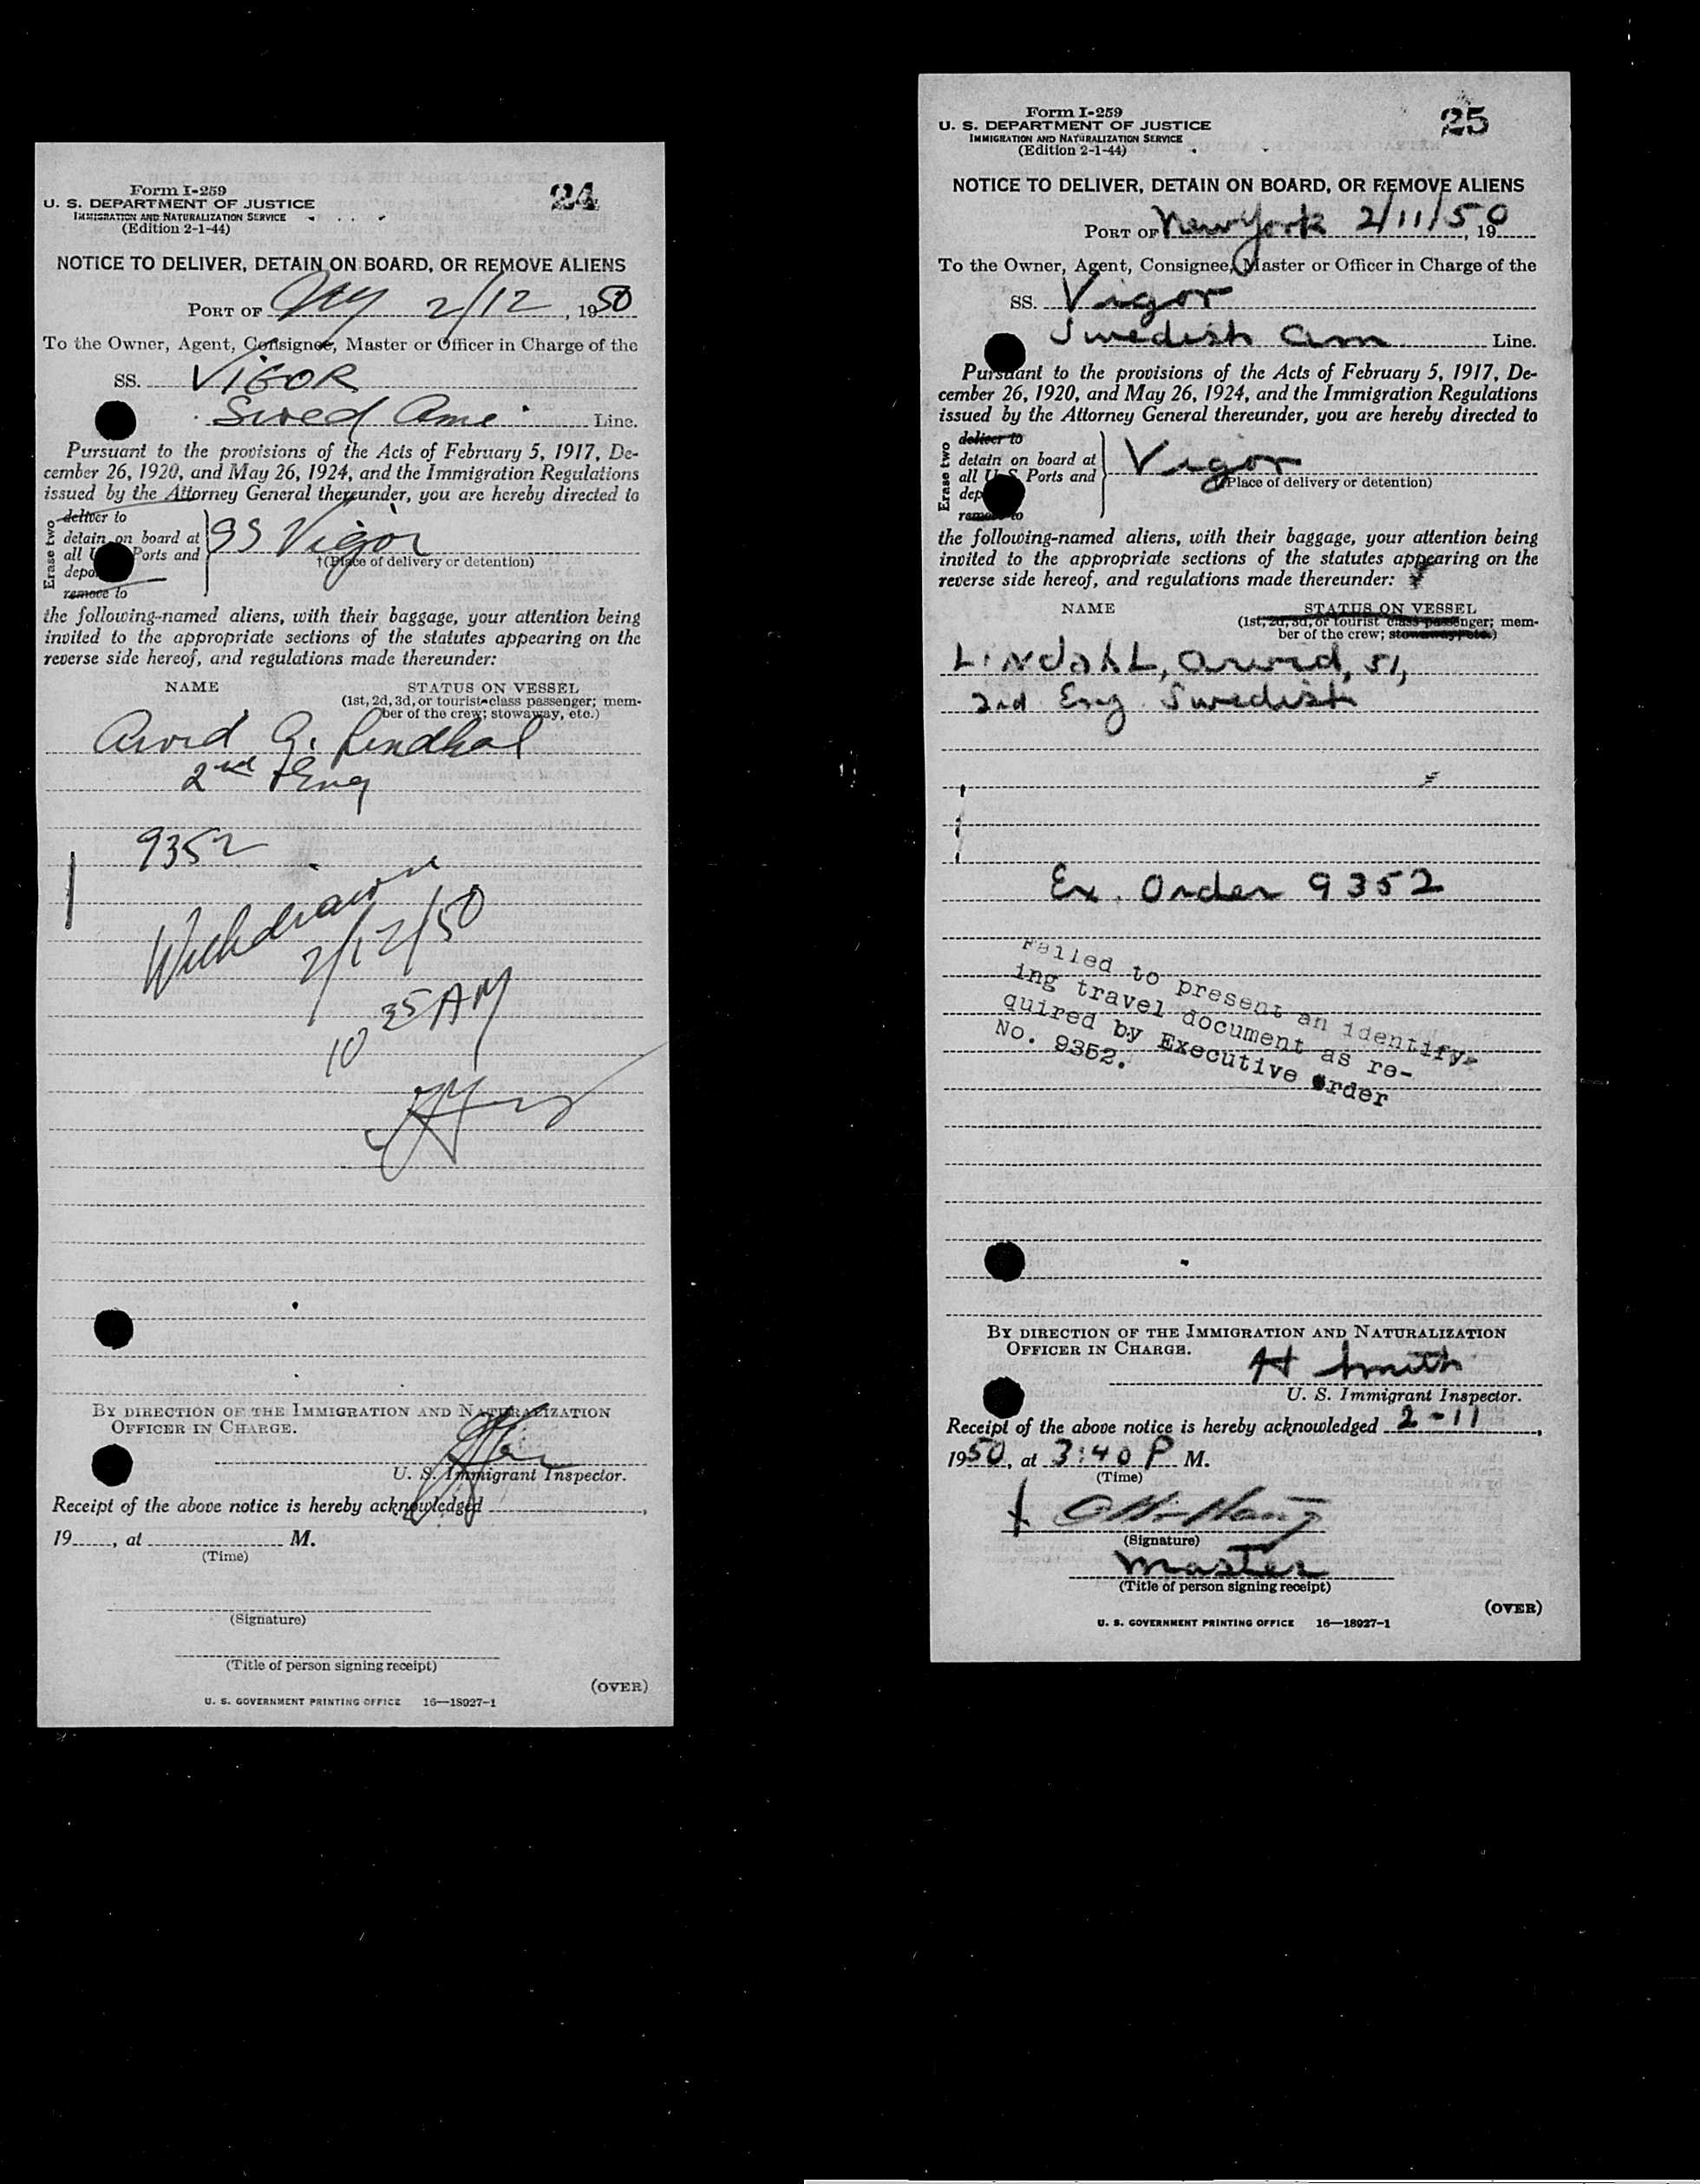 Form I-259
U. S. DEPARTMENT OF JUSTICE
IMMIGRATION AND NATURALIZATION SERVICE
(Edition 2-1-44)
24
NOTICE TO DELIVER, DETAIN ON BOARD, OR REMOVE ALIENS
PORT OF NY 2/12, 1950
To the Owner, Agent, Consignee, Master or Officer in Charge of the
SS. VIGOR
Swed Ame Line.
Pursuant to the provisions of the Acts of February 5, 1917, De-
cember 26, 1920, and May 26, 1924, and the Immigration Regulations
issued by the Attorney General thereunder, you are hereby directed to
Erase two
deliver to
detain on board at
all U Ports and
depo
remove to
SS Vigor
†(Place of delivery or detention)
the following-named aliens, with their baggage, your attention being
invited to the appropriate sections of the statutes appearing on the
reverse side hereof, and regulations made thereunder:
NAME STATUS ON VESSEL
(1st, 2d, 3d, or tourist-class passenger; mem-
ber of the crew; stowaway, etc.)
Arvid G. Lindhal
2nd Eng
9352
Withdrawn
2/12/50
10 35 AM
BY DIRECTION OF THE IMMIGRATION AND NATURALIZATION
OFFICER IN CHARGE.
U. S. Immigrant Inspector.
Receipt of the above notice is hereby acknowledged
19, at M.
(Time)
(Signature)
(Title of person signing receipt)
(OVER)
U. S. GOVERNMENT PRINTING OFFICE 16—18927-1
Form I-259
U. S. DEPARTMENT OF JUSTICE
IMMIGRATION AND NATURALIZATION SERVICE
(Edition 2-1-44)
25
NOTICE TO DELIVER, DETAIN ON BOARD, OR REMOVE ALIENS
PORT OF New York 2/11/50, 19
To the Owner, Agent, Consignee, Master or Officer in Charge of the
SS. Vigor
Swedish Am Line.
Pursuant to the provisions of the Acts of February 5, 1917, De-
cember 26, 1920, and May 26, 1924, and the Immigration Regulations
issued by the Attorney General thereunder, you are hereby directed to
Erase two
deliver to
detain on board at
all U.S. Ports and
dep
remove to
Vigor
(Place of delivery or detention)
the following-named aliens, with their baggage, your attention being
invited to the appropriate sections of the statutes appearing on the
reverse side hereof, and regulations made thereunder:
NAME STATUS ON VESSEL
(1st, 2d, 3d, or tourist class passenger; mem-
ber of the crew; stowaway, etc.)
LINdahL, Arvid, 51,
2nd Eng. Swedish
Ex. Order 9352
Failed to present an identify-
ing travel document as re-
quired by Executive Order
No. 9352.
BY DIRECTION OF THE IMMIGRATION AND NATURALIZATION
OFFICER IN CHARGE.
H Smith
U. S. Immigrant Inspector.
Receipt of the above notice is hereby acknowledged 2-11,
1950, at 3:40 P M.
(Time)
(Signature)
Master
(Title of person signing receipt)
(OVER)
U. S. GOVERNMENT PRINTING OFFICE 16—18927-1